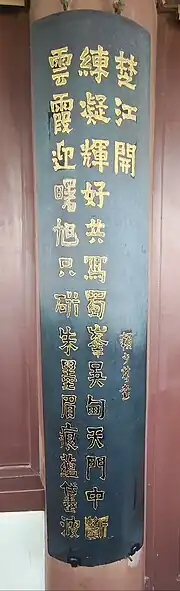 楚江開
練凝輝好共寫蜀峯吳甸天門中斷
雲霞迎曙旭只研朱墨眉痕蘊儀波